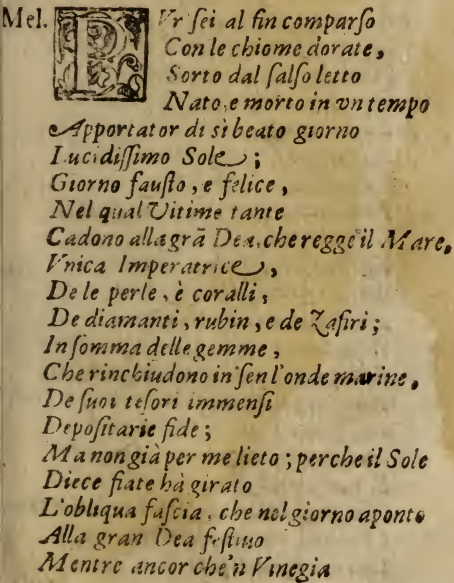 Mel. PVr ſei al fin comparſo
Con le chiome dorate,
Sorto dal ſalſo letto
Nato, e morto in vn tempo
Apportator di sì beato giorno
Lucidiſſimo Sole;
Giorno fauſto, e felice,
Nel qual Vitime tante
Cadono alla grā Dea, che regge il Mare,
Vnica Imperatrice,
De le perle, è coralli,
De diamanti, rubin, e de Zafiri;
In ſomma delle gemme,
Che rinchiudono in ſen l'onde marine,
De ſuoi teſori immenſi
Depoſitarie fide;
Ma non già per me lieto; perche il Sole
Diece fiate hà girato
L'obliqua faſcia, che nel giorno aponto
Alla gran Dea feſtiuo
Mentre ancor che'n Vinegia